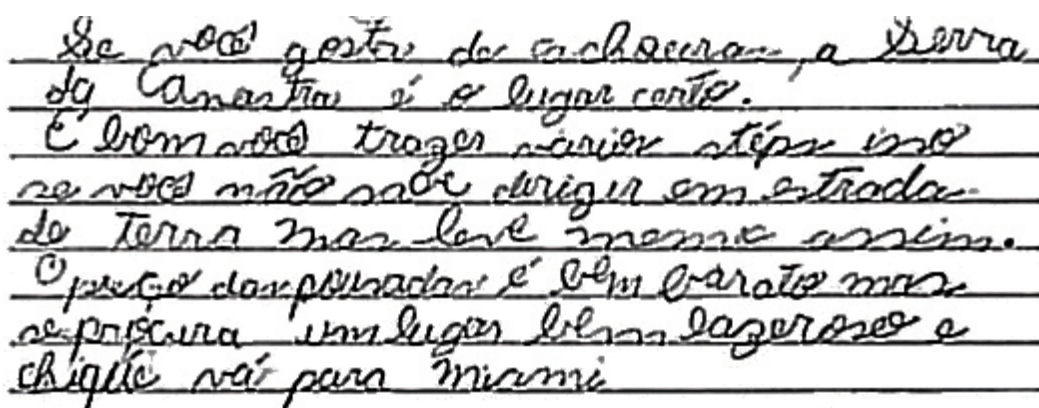 Se você gosta de cachoeiras, a Serra
da Canastra é o lugar certo.
É bom você trazer vários stéps isso
se você não sabe dirigir em estrada
de terra mas leve mesmo assim.
O preço das pousadas é bem barato mas
se procura um lugar bem lazeroso e
chique vá para Miami